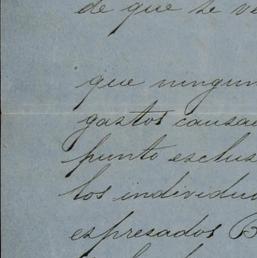 de que se ve
que ningun
gastos causa
punto exclus
los individu
espresados B